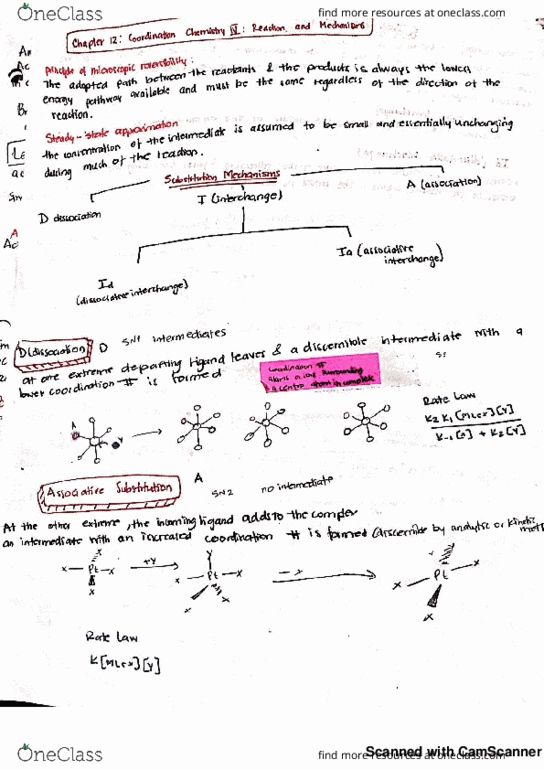 OneClass
find more resources at oneclass.com
Chapter 12: Coordination Chemistry IV: Reaction, and Mechanisms
principle of microscopic reversibility:
The adopted path between the reactants & the products is always the lowest
energy pathway available and must be the same regardless of the direction of the
reaction.
Steady-state approximation
the concentration of the intermediate is assumed to be small and essentially unchanging
during much of the reaction.
Substitution Mechanisms
D dissociation
I (interchange)
A (association)
Id
(dissociative interchange)
Ia (associative
interchange)
D (dissociation) D SN1 intermediates
at one extreme departing ligand leaves & a discernible intermediate with a
lower coordination # is formed
Coordination #
surrounding
a central atom in complex
Rate Law
K2 K1 [MLCX] [Y]
K-1 [X] + K2 [Y]
Associative Substitution
A
SN2 no intermediate
At the other extreme, the incoming ligand adds to the complex
an intermediate with an increased coordination # is formed (discernible by analytic or kinetic
X Pt X X
+Y
Y X Pt X X
-X
X Pt X X
Rate Law
K[MLCX][Y]
OneClass
find more resources at oneclass.com
Scanned with CamScanner